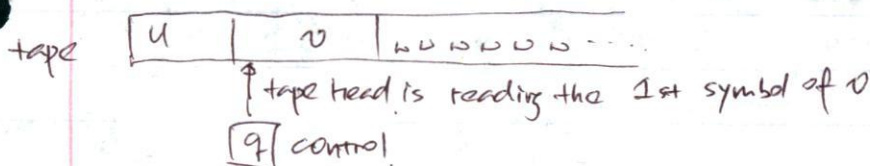 tape u v ␣ ␣ ␣ ␣ ␣ ␣ ....
tape head is reading the 1st symbol of v
q control